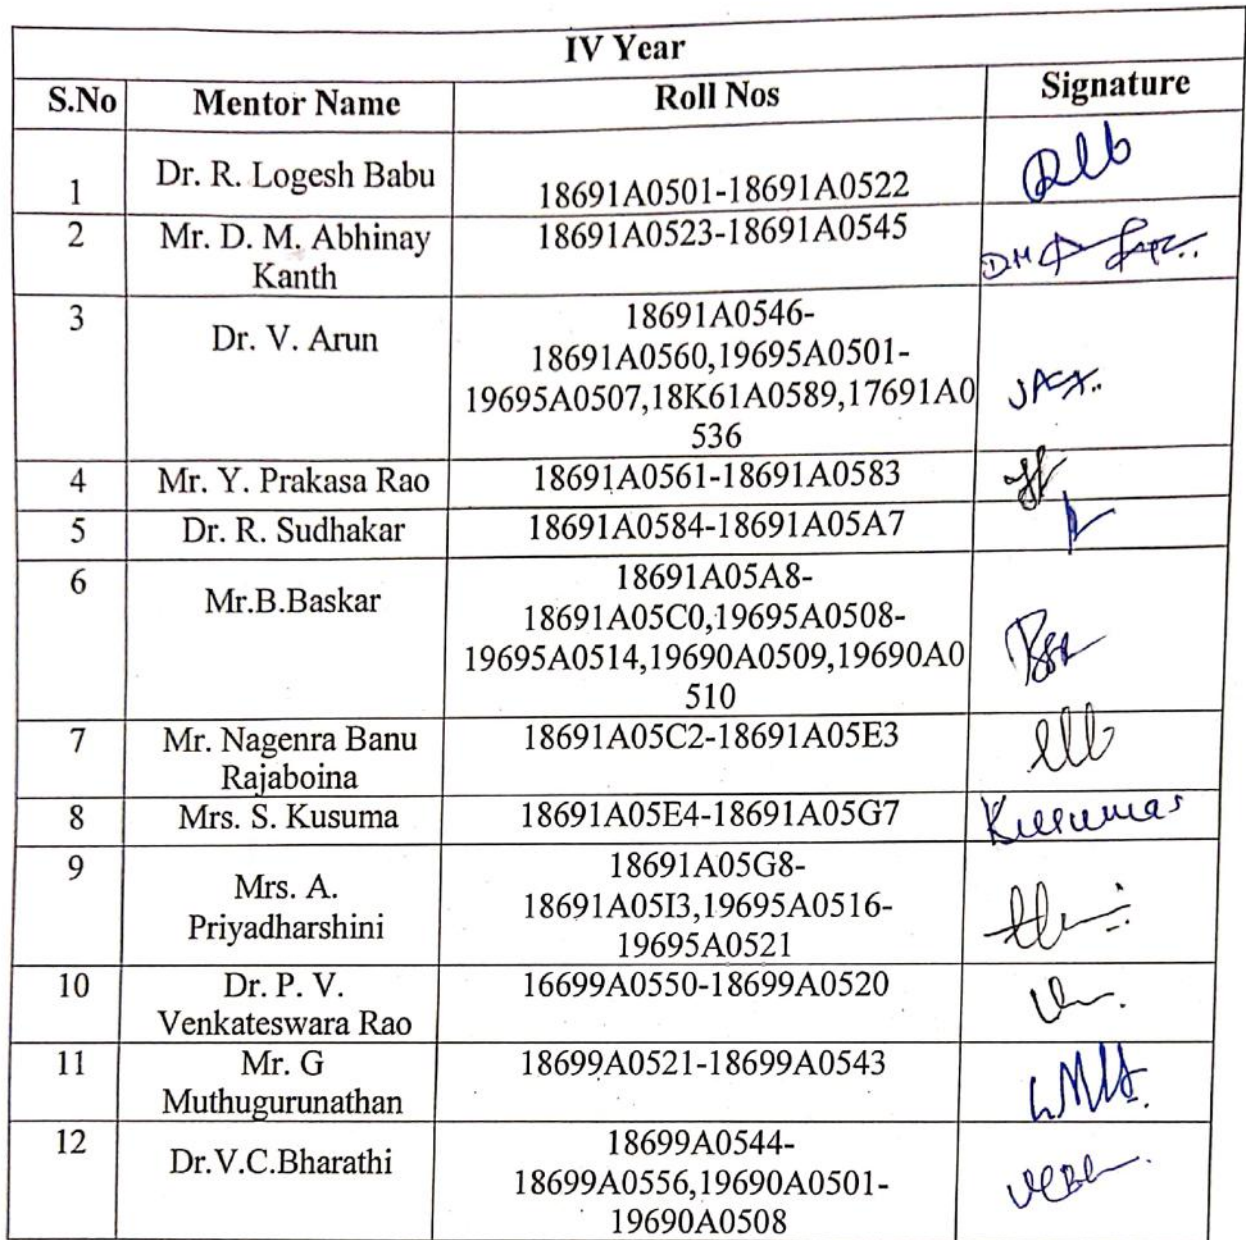 IV Year
S.No Mentor Name Roll Nos Signature
1 Dr. R. Logesh Babu 18691A0501-18691A0522
2 Mr. D. M. Abhinay 18691A0523-18691A0545
Kanth
3 Dr. V. Arun 18691A0546-
18691A0560,19695A0501-
19695A0507,18K61A0589,17691A0
536
4 Mr. Y. Prakasa Rao 18691A0561-18691A0583
5 Dr. R. Sudhakar 18691A0584-18691A05A7
6 Mr.B.Baskar 18691A05A8-
18691A05C0,19695A0508-
19695A0514,19690A0509,19690A0
510
7 Mr. Nagenra Banu 18691A05C2-18691A05E3
Rajaboina
8 Mrs. S. Kusuma 18691A05E4-18691A05G7
9 Mrs. A. 18691A05G8-
Priyadharshini 18691A05I3,19695A0516-
19695A0521
10 Dr. P. V. 16699A0550-18699A0520
Venkateswara Rao
11 Mr. G 18699A0521-18699A0543
Muthugurunathan
12 Dr.V.C.Bharathi 18699A0544-
18699A0556,19690A0501-
19690A0508